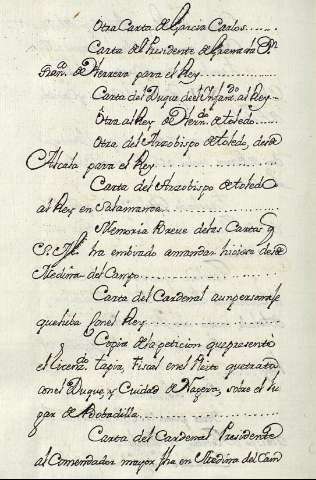 Otra Carta de Garcia Carlos........
Carta del Presidente de Granada Dn.
Franco. de Herrera para el Rey..........
Carta del Duque del Ynfando. al Rey..
Otra al Rey de Herno. de toledo........
Otra del Arzobispo de toledo, desde
Alcala para el Rey..................
Carta del Arzobispo de toledo
al Rey en Salamanca................
Memoria Breve de las Cartas q
S. M. ha embiado amandar hiciese desde
Medina del Campo..................
Carta del Cardenal aunpersonaje
que iba con el Rey..................
Copia de la peticion que presento
el licendo. tapia, Fiscal en el Pleito que trata
con el Duque, y Ciudad de Nagera, sobre el lu
gar de Bobadilla..................
Carta del Cardenal Presidente
al Comendador mayor fha en Medina del Cam